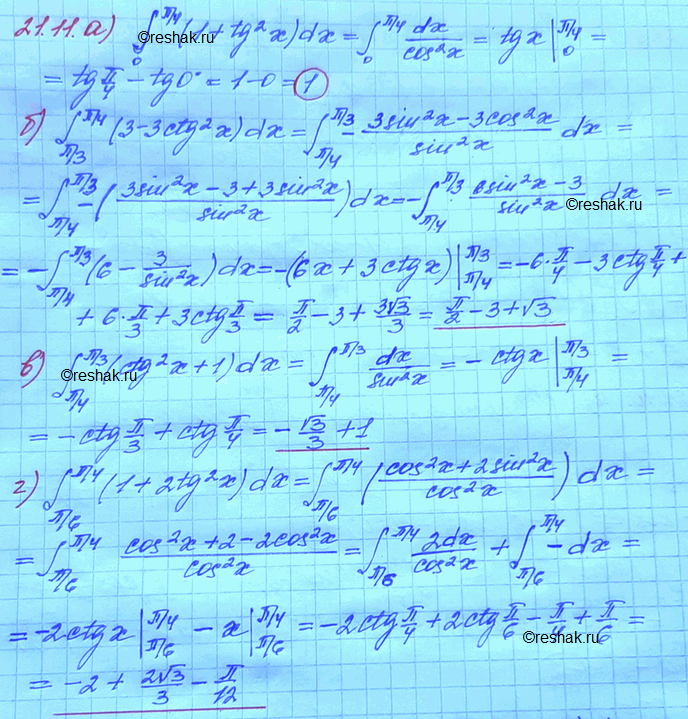 21.11. а) ∫₀^π/4 (1+tg²x)dx = ∫₀^π/4 dx/cos²x = tgx |₀^π/4 =
= tg π/4 − tg0° = 1−0 = 1
©reshak.ru
б) ∫_π/3^π/4 (3−3ctg²x)dx = ∫_π/4^π/3 − (3sin²x−3cos²x)/sin²x dx =
= ∫_π/4^π/3 −((3sin²x−3+3sin²x)/sin²x)dx = −∫_π/4^π/3 (6sin²x−3)/sin²x dx =
©reshak.ru
= −∫_π/4^π/3 (6 − 3/sin²x)dx = −(6x+3ctgx)|_π/4^π/3 = −6·π/4 − 3ctg π/4 +
+ 6·π/3 + 3ctg π/3 = π/2 − 3 + 3√3/3 = π/2 − 3 + √3
в) ∫_π/4^π/3 (ctg²x+1)dx = ∫_π/4^π/3 dx/sin²x = −ctgx |_π/4^π/3 =
©reshak.ru
= −ctg π/3 + ctg π/4 = −√3/3 + 1
г) ∫_π/6^π/4 (1+2tg²x)dx = ∫_π/6^π/4 ((cos²x+2sin²x)/cos²x) dx =
= ∫_π/6^π/4 (cos²x+2−2cos²x)/cos²x = ∫_π/6^π/4 2dx/cos²x + ∫_π/6^π/4 −dx =
= −2ctgx |_π/6^π/4 − x |_π/6^π/4 = −2ctg π/4 + 2ctg π/6 − π/4 + π/6 =
©reshak.ru
= −2 + 2√3/3 − π/12